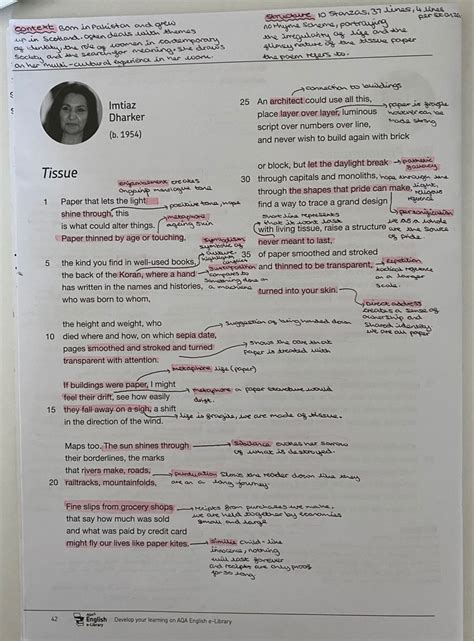 Context Born in Pakistan and grew
up in Scotland. Often deals with themes
of identity, the role of women in contemporary
society and the search for meaning. She draws
on her multi-cultural experience in her work.
Structure 10 Stanzas, 37 lines, 4 lines
per stanza
no rhyme scheme, portraying
the irregularity of life and the
flimsy nature of the tissue paper
the poem refers to.
Imtiaz
Dharker
(b. 1954)
Tissue
enjambment creates
ongoing monologue tone
1 Paper that lets the light
positive tone, maps
shine through, this
metaphore
ageing skin
is what could alter things.
Paper thinned by age or touching,
symbolism
symbolic of
culture
5 the kind you find in well-used books,
the back of the Koran, where a hand
juxtaposition
compares to
something done on
a machine
has written in the names and histories,
who was born to whom,
the height and weight, who
suggestion of being handed down
10 died where and how, on which sepia date,
pages smoothed and stroked and turned
shows the care that
paper is treated with
transparent with attention.
metaphore life (paper)
If buildings were paper, I might
feel their drift, see how easily
metaphore a paper structure would
drift.
15 they fall away on a sigh, a shift
life is fragile, we are made of tissue.
in the direction of the wind.
Maps too. The sun shines through
sibilance
of what is destroyed.
their borderlines, the marks
that rivers make, roads,
punctuation slows the reader down like they
are on a long journey
20 railtracks, mountainfolds,
Fine slips from grocery shops
reciepts from purchases we make,
we are held together by economies
small and large
that say how much was sold
and what was paid by credit card
might fly our lives like paper kites.
simile child-like
innocence, nothing
will last forever
and reciepts are only proof
for so long
connection to buildings
25 An architect could use all this,
place layer over layer, luminous
paper is fragile
however can be
made strong
script over numbers over line,
and never wish to build again with brick
or block, but let the daylight break
pathetic
fallacy
30 through capitals and monoliths,
hope through the
light,
religious
reference
through the shapes that pride can make,
find a way to trace a grand design
personification
we as a whole
are the source
of pride.
short line represents
that it wont last
with living tissue, raise a structure
never meant to last,
35 of paper smoothed and stroked
repetition
on a larger
scale.
and thinned to be transparent,
turned into your skin.
Direct address
creates a sense of
ownership and
shared identity
we are all paper
42
AQA
English
e-Library
Develop your learning on AQA English e-Library